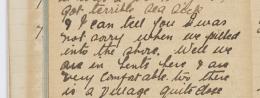 got terrible sea sick
& I can tell you I was
not sorry when we pulled
into the shore, well we
are in tents here & am
very comfortable too there
is a village quite close